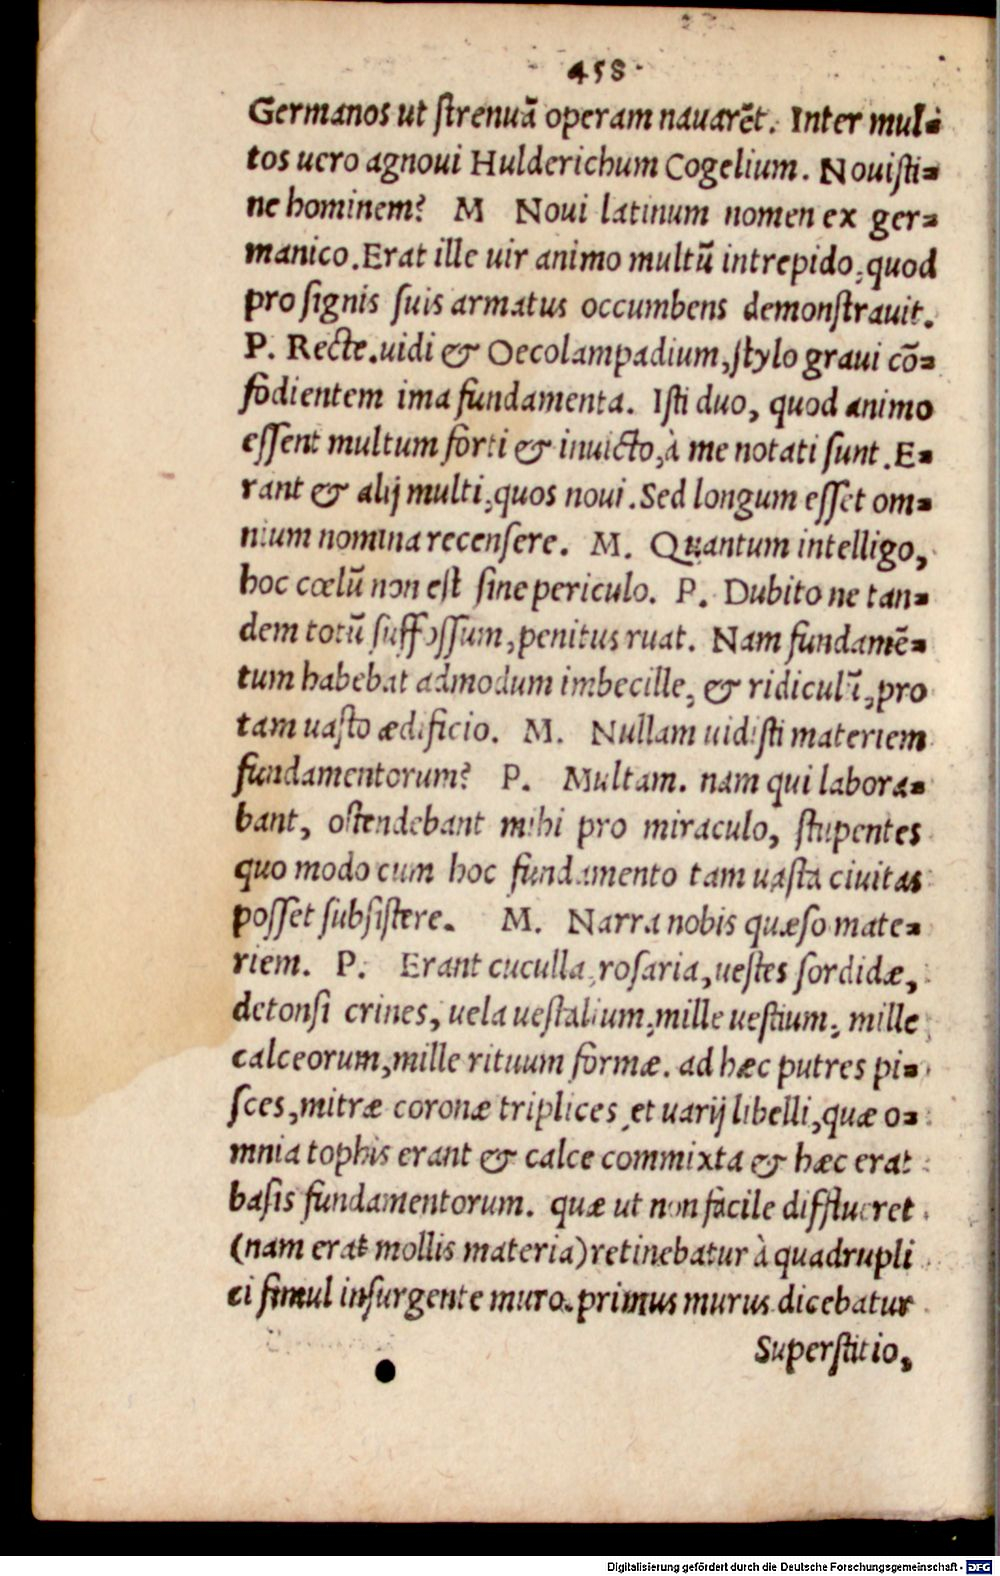 458
Germanos ut ſtrenuā operam nauarēt. Inter mul=
tos uero agnoui Hulderichum Cogelium. Nouiſti=
ne hominem? M Noui latinum nomen ex ger=
manico. Erat ille uir animo multū intrepido, quod
pro ſignis ſuis armatus occumbens demonſtrauit.
P. Recte. uidi & Oecolampadium, ſtylo graui cō=
fodientem ima fundamenta. Iſti duo, quod animo
eſſent multum forti & inuicto, à me notati ſunt. E=
rant & alij multi, quos noui. Sed longum eſſet om=
nium nomina recenſere. M. Quantum intelligo,
hoc cœlū non eſt ſine periculo. P. Dubito ne tan=
dem totū ſuffoſſum, penitus ruat. Nam fundamē=
tum habebat admodum imbecille, & ridiculū, pro
tam uaſto ædificio. M. Nullam uidiſti materiem
fundamentorum? P. Multam. nam qui labora=
bant, oſtendebant mihi pro miraculo, ſtupentes
quo modo cum hoc fundamento tam uaſta ciuitas
poſſet ſubſiſtere. M. Narra nobis quæſo mate=
riem. P. Erant cuculla, roſaria, ueſtes ſordidæ,
detonſi crines, uela ueſtalium, mille ueſtium, mille
calceorum, mille rituum formæ. ad hæc putres pi=
ſces, mitræ coronæ triplices, et uarij libelli, quæ o=
mnia tophis erant & calce commixta & hæc erat
baſis fundamentorum. quæ ut non facile difflueret
(nam erat mollis materia) retinebatur à quadrupli
ci ſimul inſurgente muro. primus murus dicebatur
Superſtitio,
Digitalisierung gefördert durch die Deutsche Forschungsgemeinschaft - DFG